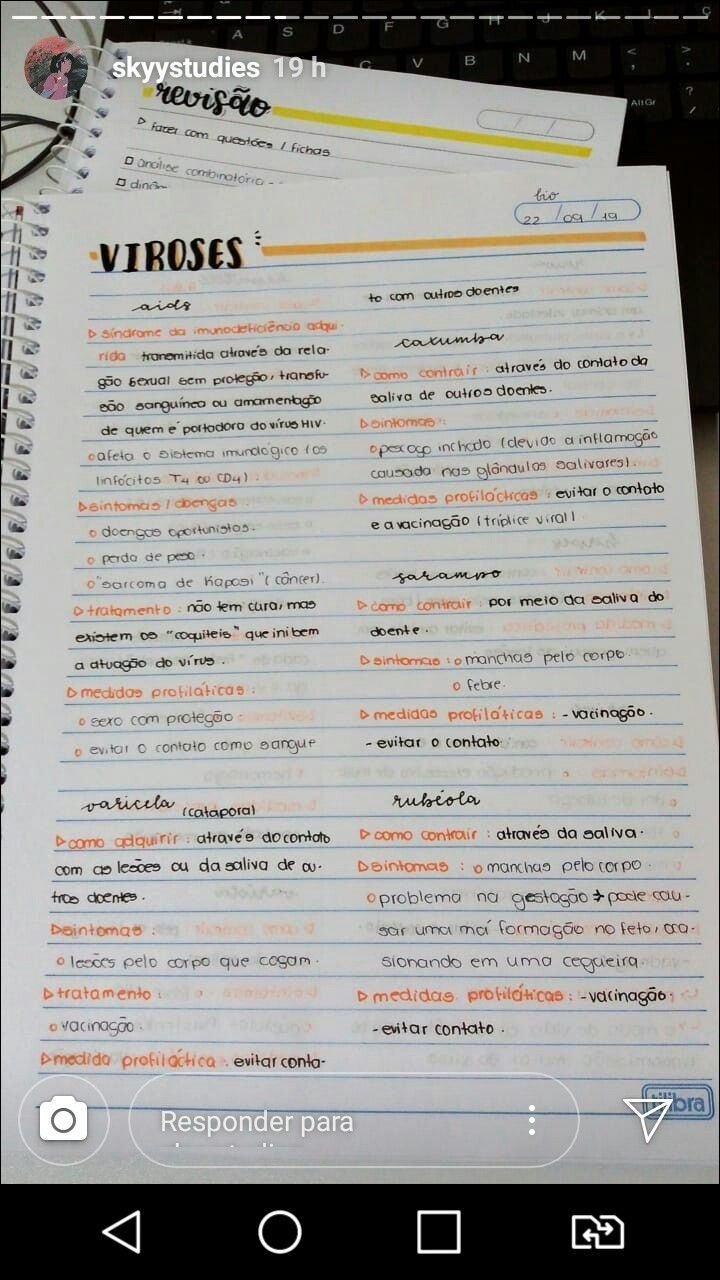 skyystudies 19 h
A S D F G H J K L
C V B N M < , > .
Alt Gr ? /
revisão
▷ fazer com questões / fichas
□ análise combinatória -
□ dinâm
bio
22 / 09 / 19
VIROSES
aids
▷ síndrome da imunodeficiência adqui-
rida transmitida através da rela-
ção sexual sem proteção, transfu-
são sanguínea ou amamentação
de quem é portadora do vírus HIV.
o afeta o sistema imunológico (os
linfócitos T4 ou CD4).
▷ sintomas / doenças
o doenças oportunistas.
o perda de peso.
o "sarcoma de Kaposi" (câncer).
▷ tratamento: não tem cura, mas
existem os "coquiteis" que inibem
a atuação do vírus.
▷ medidas profiláticas:
o sexo com proteção
o evitar o contato como sangue
varicela (catapora)
▷ como adquirir: através do contato
com as lesões ou da saliva de ou-
tros doentes.
▷ sintomas:
o lesões pelo corpo que coçam.
▷ tratamento:
o vacinação.
▷ medida profiláctica: evitar conta-
to com outros doentes
caxumba
▷ como contrair: através do contato da
saliva de outros doentes.
▷ sintomas:
o pescoço inchado (devido a inflamação
causada nas glândulas salivares).
▷ medidas profilácticas: evitar o contato
e a vacinação (tríplice viral)
sarampo
▷ como contrair: por meio da saliva do
doente.
▷ sintomas: o manchas pelo corpo.
o febre.
▷ medidas profiláticas: - vacinação.
- evitar o contato.
rubéola
▷ como contrair: através da saliva.
▷ sintomas: o manchas pelo corpo.
o problema na gestação → pode cau-
sar uma má formação no feto, oca-
sionando em uma cegueira
▷ medidas profiláticas: - vacinação;
- evitar contato.
tilibra
Responder para